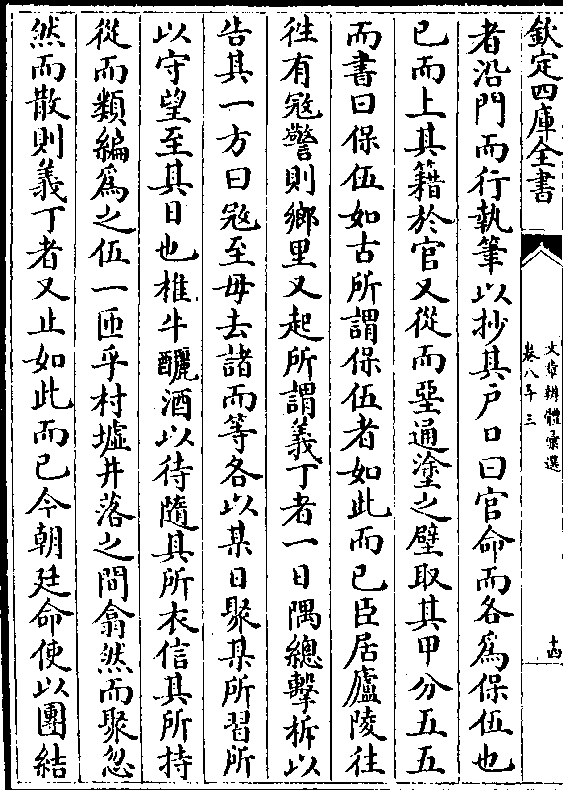 欽定四庫全書
文章辨體彙選
卷八十三
十四
者沿門而行執筆以抄其戶口曰官命而各為保伍也
已而上其籍於官又從而堊通塗之壁取其甲分五五
而書曰保伍如古所謂保伍者如此而已臣居廬陵往
往有宼警則鄉里又起所謂義丁者一日隅總擊柝以
告其一方曰宼至毋去諸而等各以某日聚某所習所
以守望至其日也椎牛釃酒以待隨其所衣信其所持
從而類編為之伍一匝乎村墟井落之間翕然而聚忽
然而散則義丁者又止如此而已今朝廷命使以團結